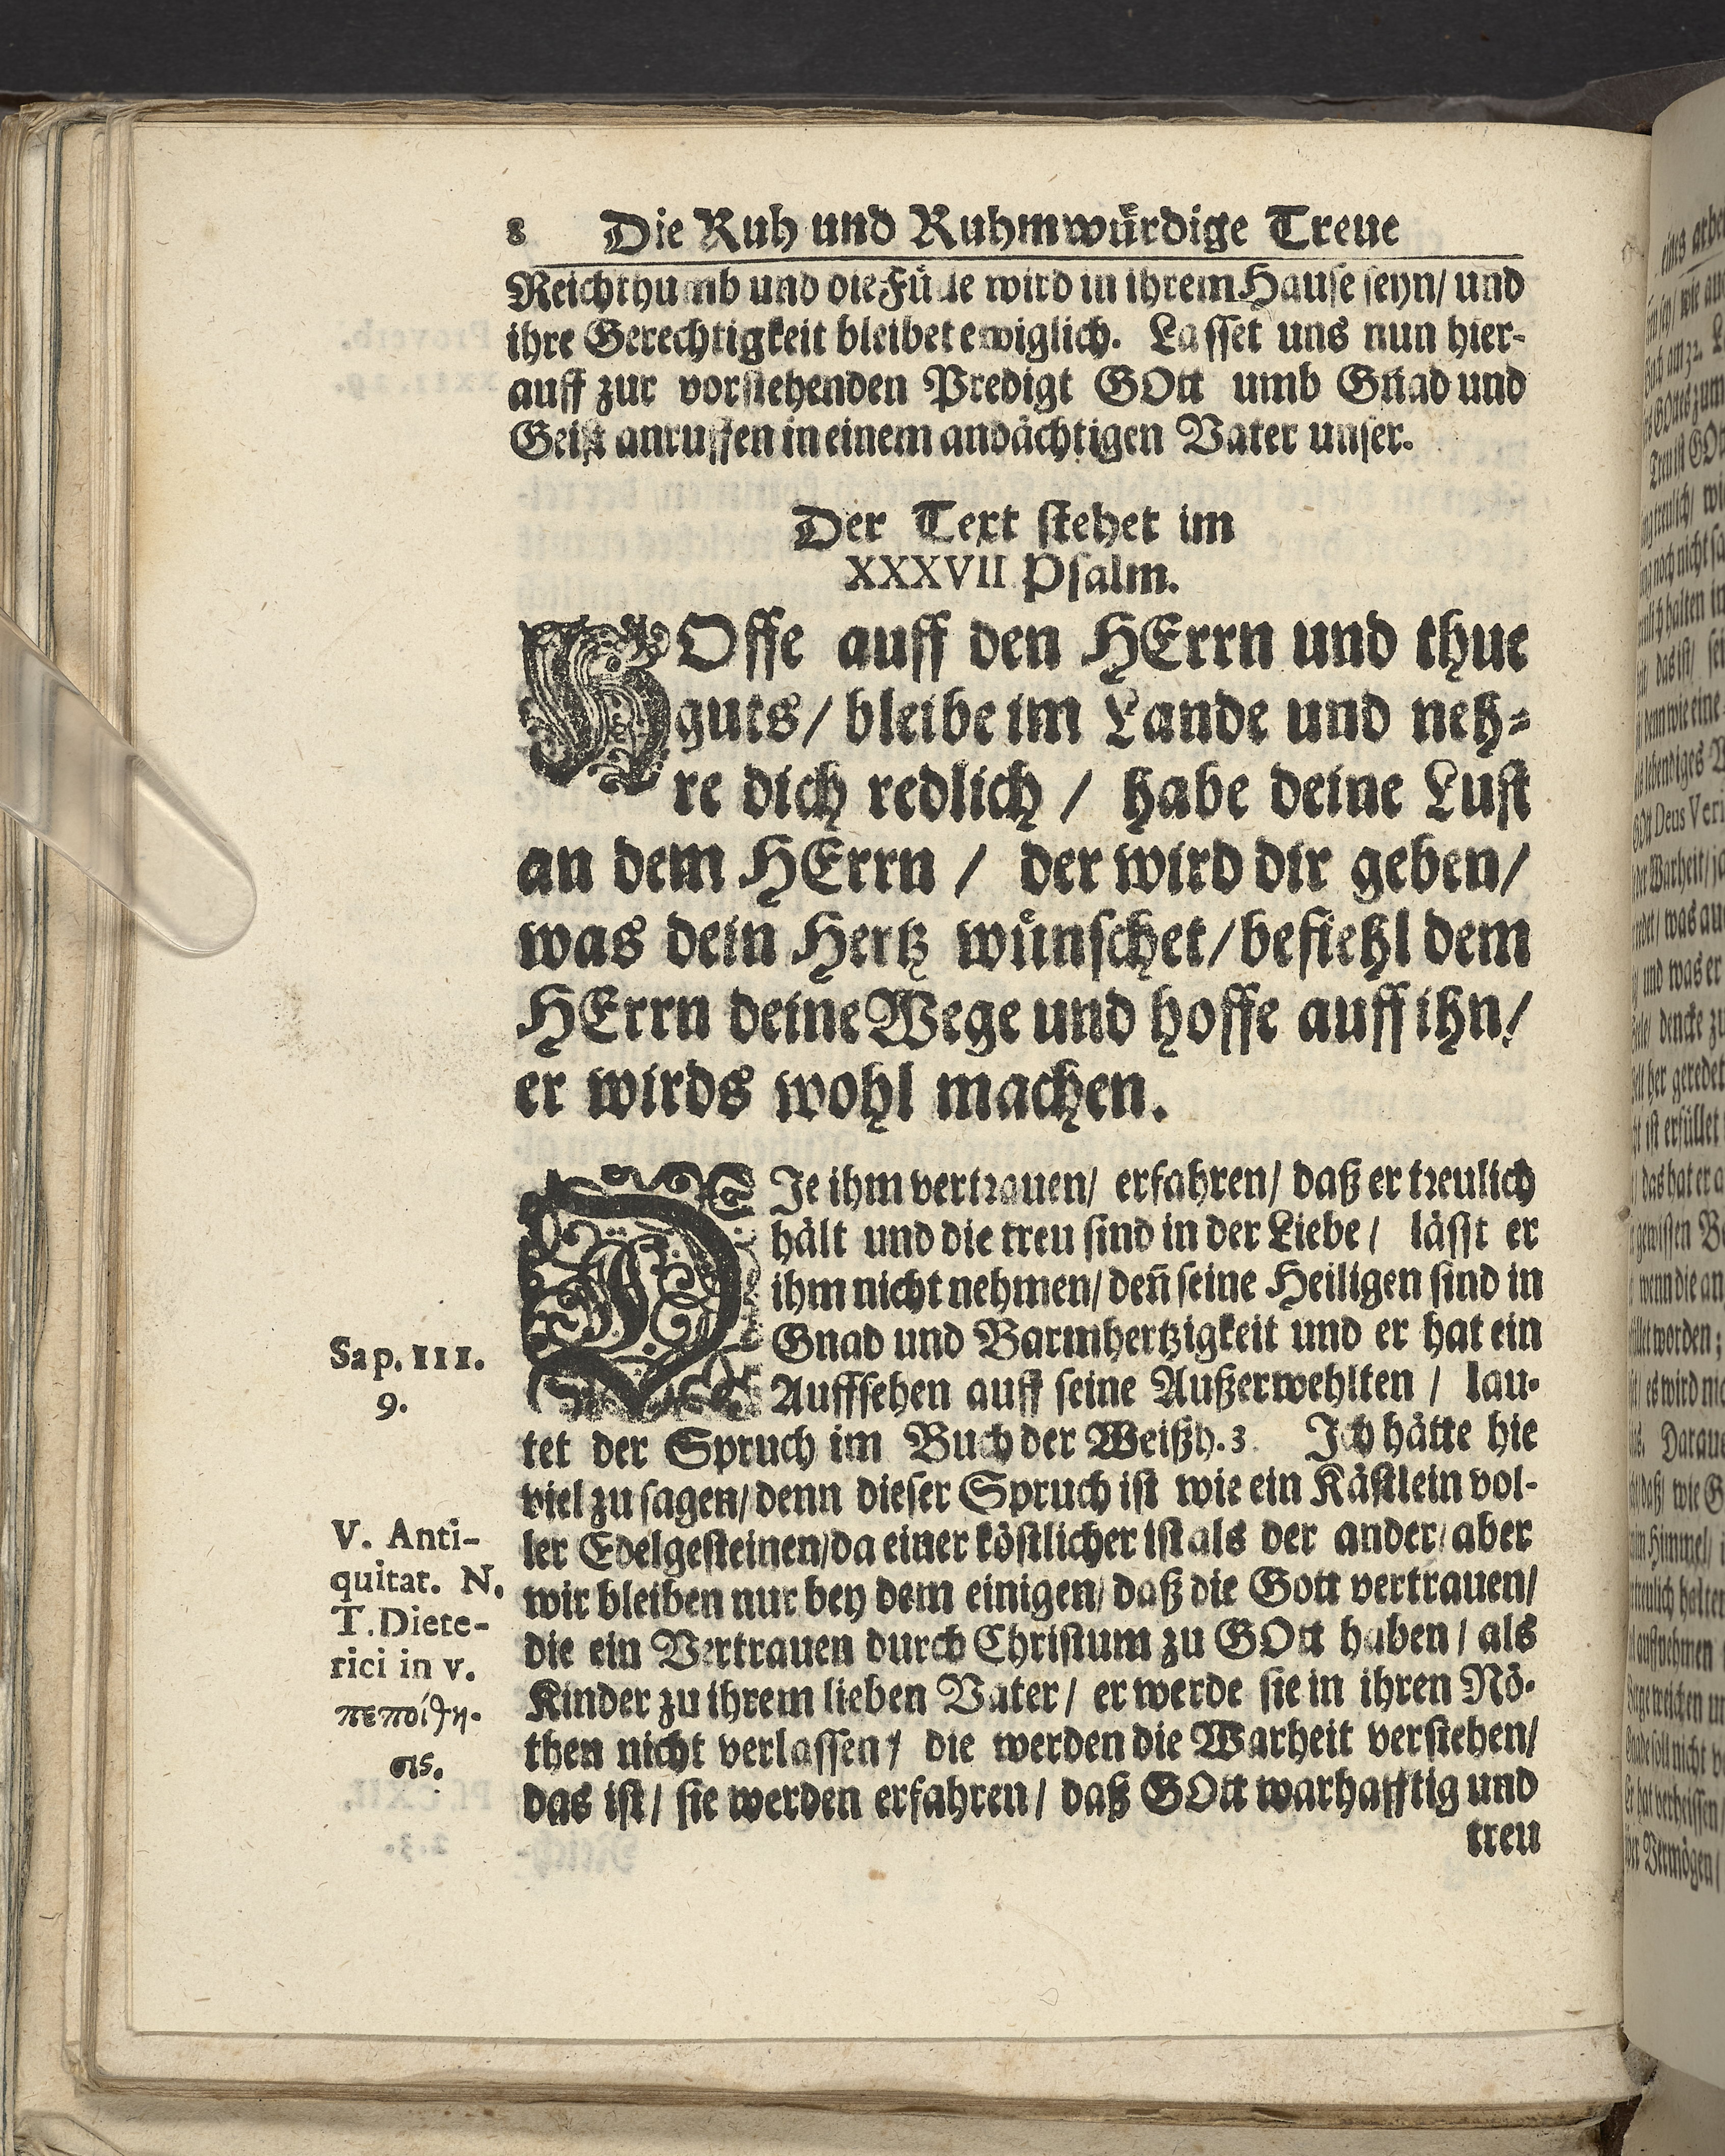 8 Die Ruh und Ruhmwürdige Treue
Reichthumb und die Fülle wird in ihrem Hause seyn/ und
ihre Gerechtigkeit bleibet ewiglich. Lasset uns nun hier-
auff zur vorstehenden Predigt GOtt umb Gnad und
Geist anruffen in einem andächtigen Vater unser.
Der Text stehet im
XXXVII Psalm.
HOffe auff den HErrn und thue
guts/ bleibe im Lande und neh-
re dich redlich / habe deine Lust
an dem HErrn / der wird dir geben/
was dein Hertz wünschet/ befiehl dem
HErrn deine Wege und hoffe auff ihn/
er wirds wohl machen.
DIe ihm vertrauen/ erfahren/ daß er treulich
hält und die treu sind in der Liebe / lässt er
ihm nicht nehmen/ deñ seine Heiligen sind in
Gnad und Barmhertzigkeit und er hat ein
Auffsehen auff seine Außerwehlten / lau-
tet der Spruch im Buch der Weißh. 3. Ich hätte hie
viel zu sagen/ denn dieser Spruch ist wie ein Kästlein vol-
ler Edelgesteinen/ da einer köstlicher ist als der ander/ aber
wir bleiben nur bey dem einigen/ daß die Gott vertrauen/
die ein Vertrauen durch Christum zu GOtt haben / als
Kinder zu ihrem lieben Vater / er werde sie in ihren Nö-
then nicht verlassen / die werden die Warheit verstehen/
das ist / sie werden erfahren / daß GOtt warhafftig und
treu
Sap. III.
9.
V. Anti-
quitat. N.
T. Diete-
rici in v.
πεποίθη-
σις.